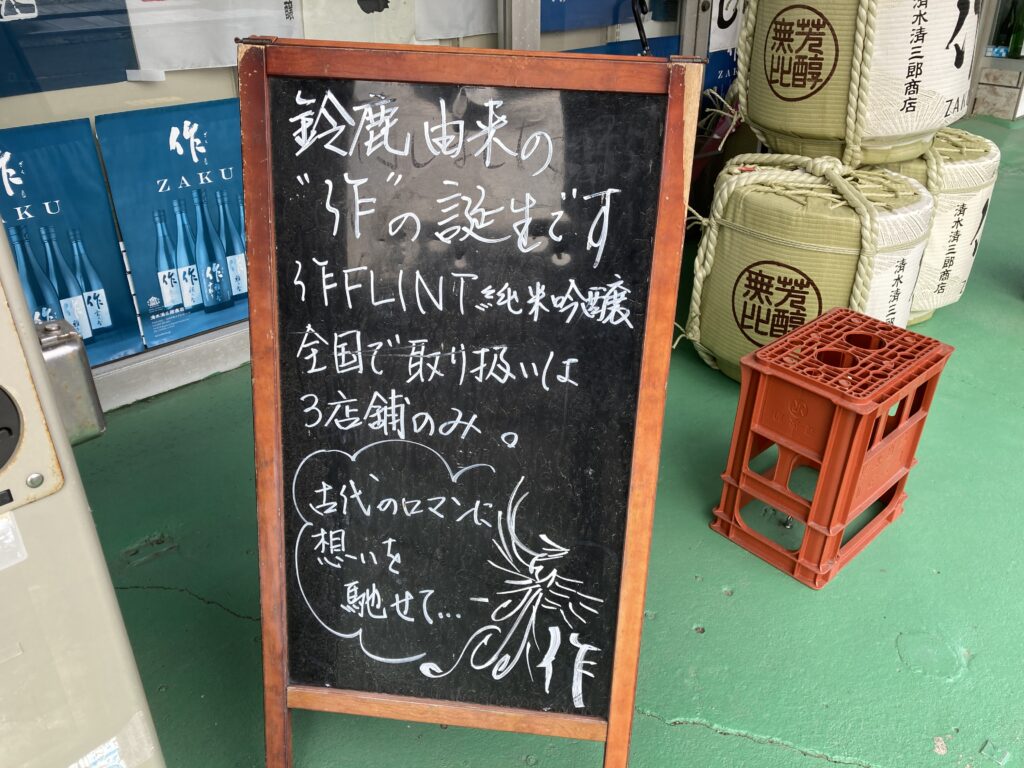 鈴鹿由来の
"作"の誕生です
作FLINT 純米吟醸
全国で取り扱いは
3店舗のみ。
古代のロマンに
想いを
馳せて…
作
作
ZAKU
作
ZAKU
作
作
作
芳醇
無比
清水清三郎商店
ZAKU
芳醇
無比
清水清三郎商店
清水清三郎商店